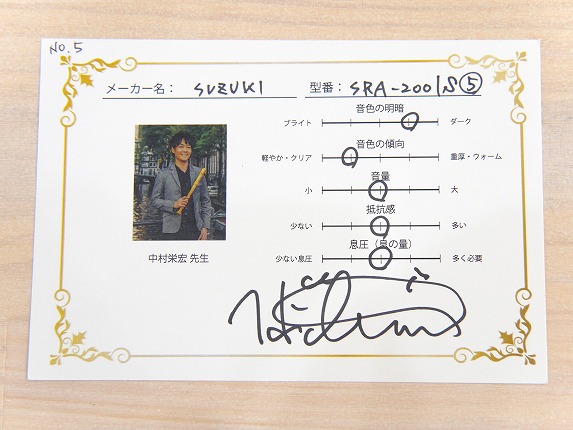 NO.5
メーカー名： SUZUKI 型番： SRA-2001S⑤
音色の明暗
ブライト ダーク
音色の傾向
軽やか・クリア 重厚・ウォーム
音量
小 大
抵抗感
少ない 多い
息圧（息の量）
少ない息圧 多く必要
中村栄宏 先生